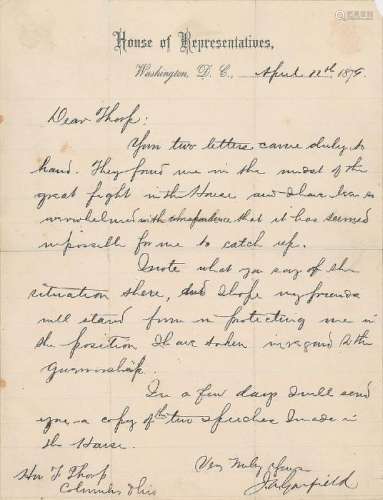 House of Representatives,
Washington, D. C., April 12th 1879.
Dear Thorp:
Your two letters came duly to
hand. They found me in the midst of the
great fight in the House and I have been so
overwhelmed with correspondence that it has seemed
impossible for me to catch up.
I note what you say of the
situation there, and I hope my friends
will stand firm in protecting me in
the position I have taken in regard to the
Governorship.
In a few days I will send
you a copy of the two speeches I made in
the House.
Very truly yours
J.A. Garfield
Hon F Thorp
Columbus Ohio